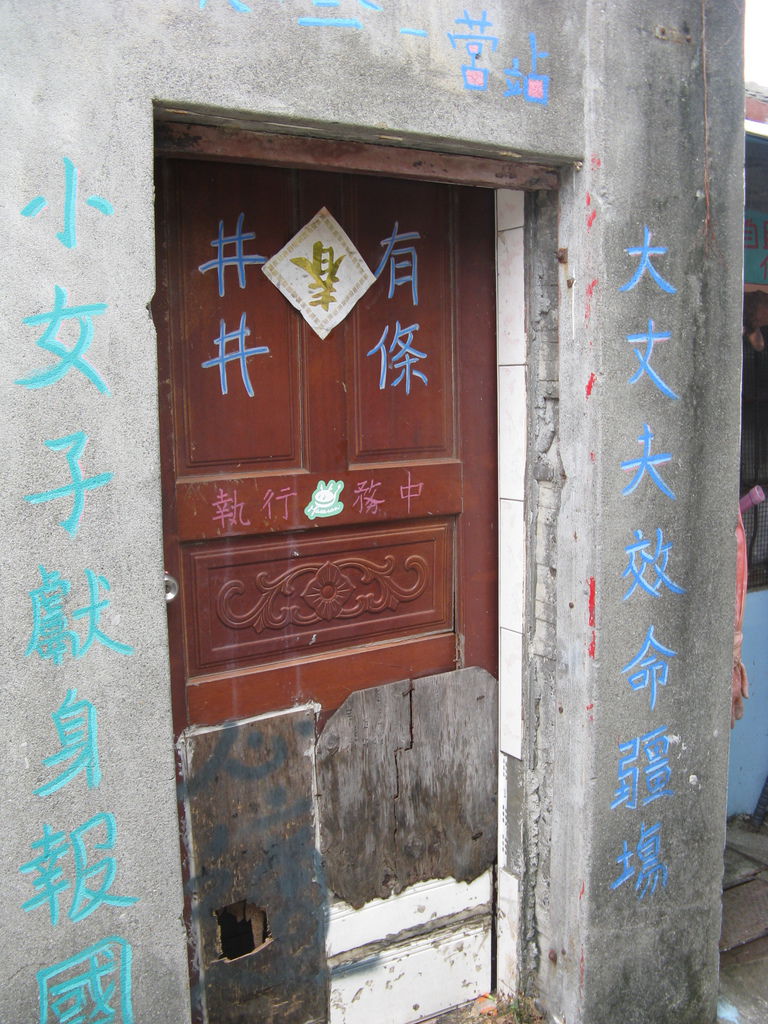 一營站
大丈夫效命疆場
小女子獻身報國
井井
有條
執行 務中